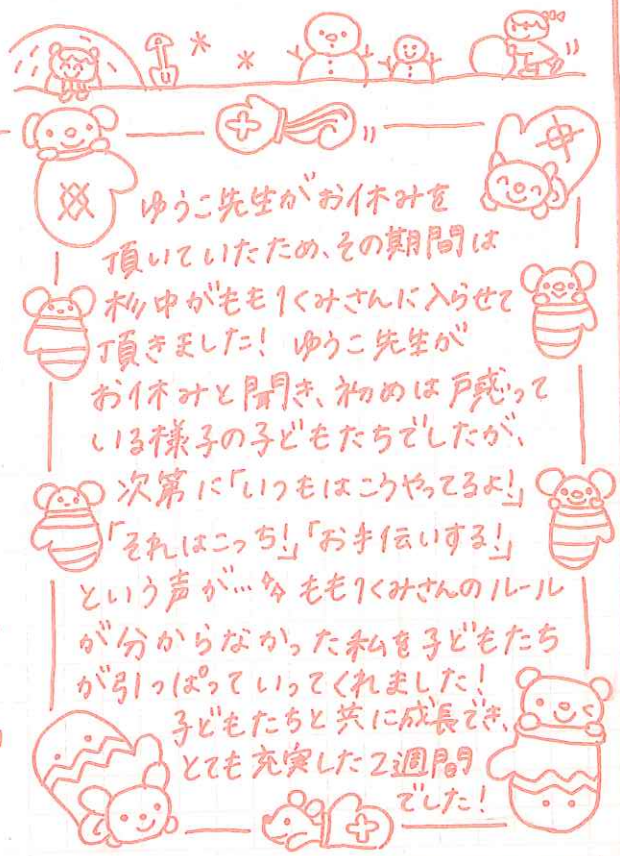 ゆうこ先生がお休みを
頂いていたため、その期間は
杉中がもも1くみさんに入らせて
頂きました! ゆうこ先生が
お休みと聞き、初めは戸惑って
いる様子の子どもたちでしたが、
次第に「いつもはこうやってるよ!」
「それはこっち!」「お手伝いする!」
という声が…もも1くみさんのルール
が分からなかった私を子どもたち
が引っぱっていってくれました!
子どもたちと共に成長でき、
とても充実した2週間
でした!